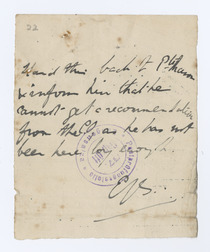 22
Hand this back to P.
& inform him that he
cannot get a recommendation
from the CO as he has not
been here long enough.